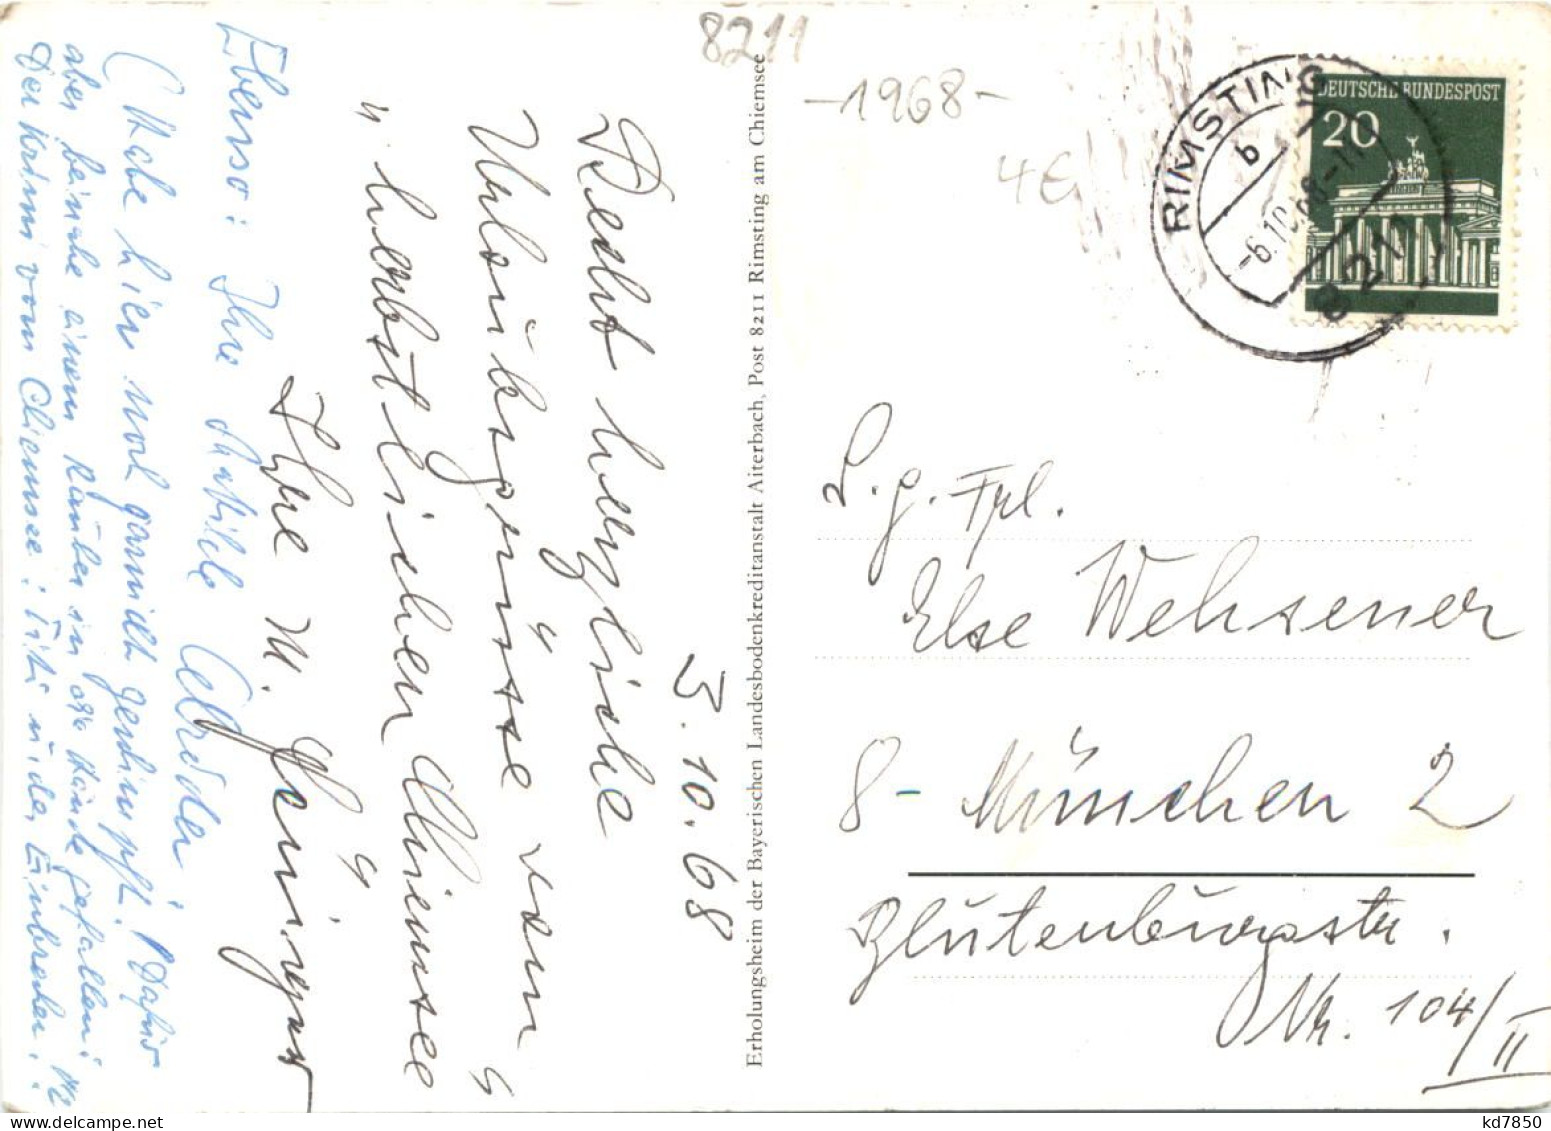 8211
-1968-
4€
RIMSTING
b
-6.10.68-11
8211
DEUTSCHE BUNDESPOST
20
Erholungsheim der Bayerischen Landesbodenkreditanstalt Aiterbach, Post 8211 Rimsting am Chiemsee
5.10.68
Recht herzliche
Urlaubsgrüsse vom
"herbstlichen Chiemsee"
Ihre M. Heininger
Ebenso: Ihre
(Habe hier noch garnicht geschimpft! Dafür
aber beinahe einem Räuber in die Hände gefallen:
Der Krimi vom Chiemsee: Titi u. der Einbrecher!
S. g. Frl.
Else Wehsener
8- München 2
Blutenburgstr.
Nr. 104/II
kd7850